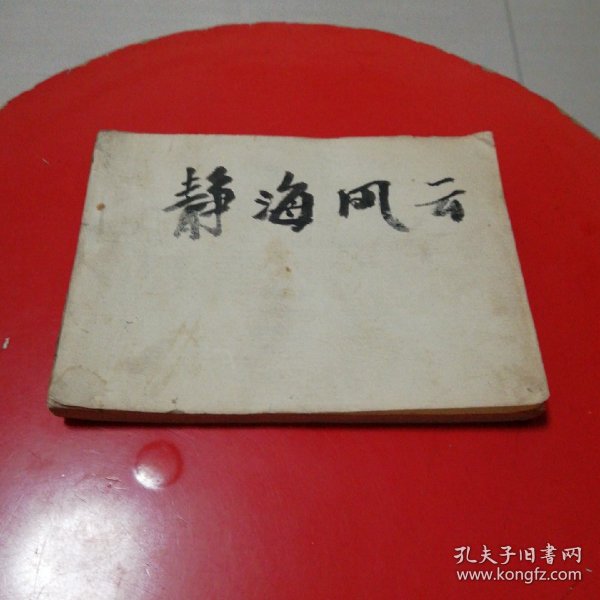 静海风云
孔夫子旧书网
www.kongfz.com